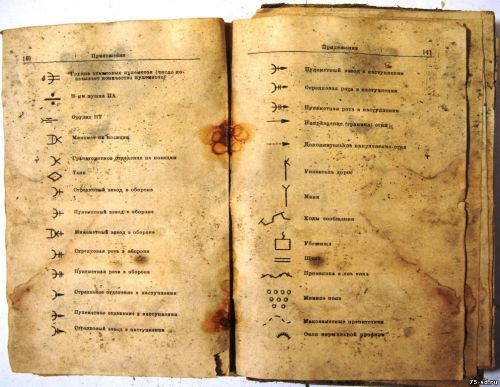 140
Приложения
Группа станковых пулеметов (число по-
казывает количество пулеметов)
Орудие ПТ
Миномет на позиции
Гранатометное отделение на позиции
Танк
Стрелковый взвод в обороне
Пулеметный взвод в обороне
Минометный взвод в обороне
Стрелковая рота в обороне
Пулеметная рота в обороне
Стрелковое отделение в наступлении
Пулеметное отделение в наступлении
Стрелковый взвод в наступлении
Приложения
141
Пулеметный взвод в наступлении
Стрелковая рота в наступлении
Пулеметная рота в наступлении
Направление (граница) огня
Дополнительное направление огня
Указатель дорог
Маяк
Ходы сообщения
Убежища
Проволока в два кола
Минное поле
Малозаметные препятствия
Окоп нормальной профили
75-sd.ru